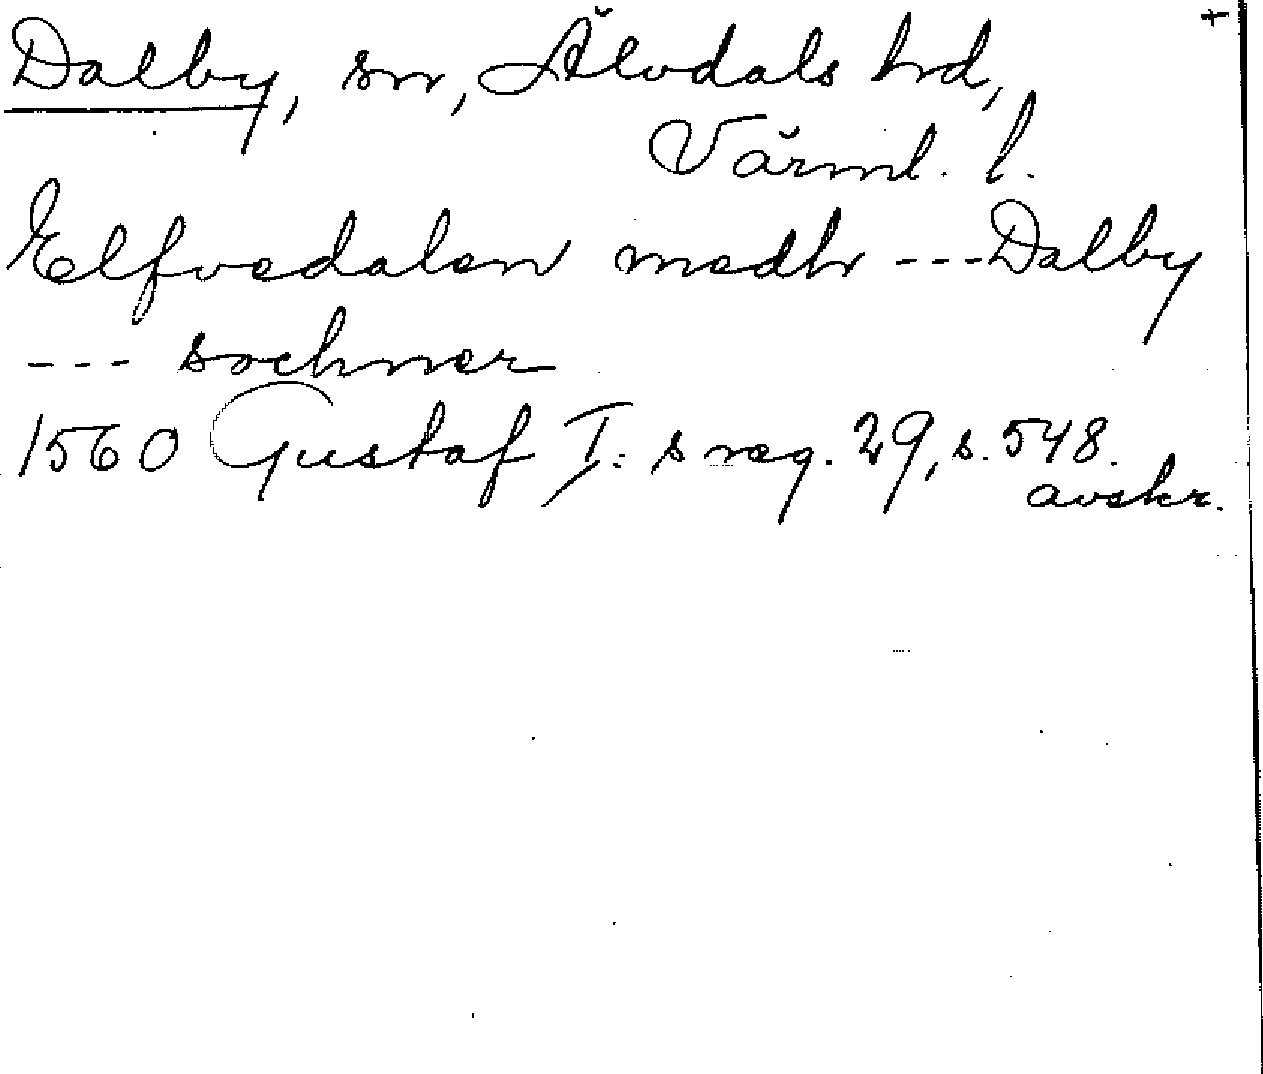 Dalby, sn, Älvdals hd,
Värml. l.
Elfvedalen medh --- Dalby
--- sochner
1560 Gustaf I:s reg. 29, s. 548.
avskr.